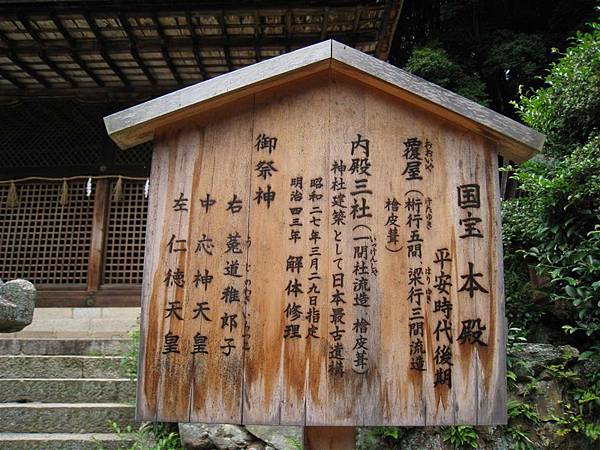 国宝 本殿
平安時代後期
覆屋（桁行五間 梁行三間流造
おおいや けたゆき はりゆき
檜皮葺）
内殿三社（一間社流造 檜皮葺）
いっけんしゃ
神社建築として日本最古遺構
昭和二七年三月二九日指定
明治四三年 解体修理
御祭神
右 菟道稚郎子
うじのわきいらつこ
中 応神天皇
左 仁徳天皇